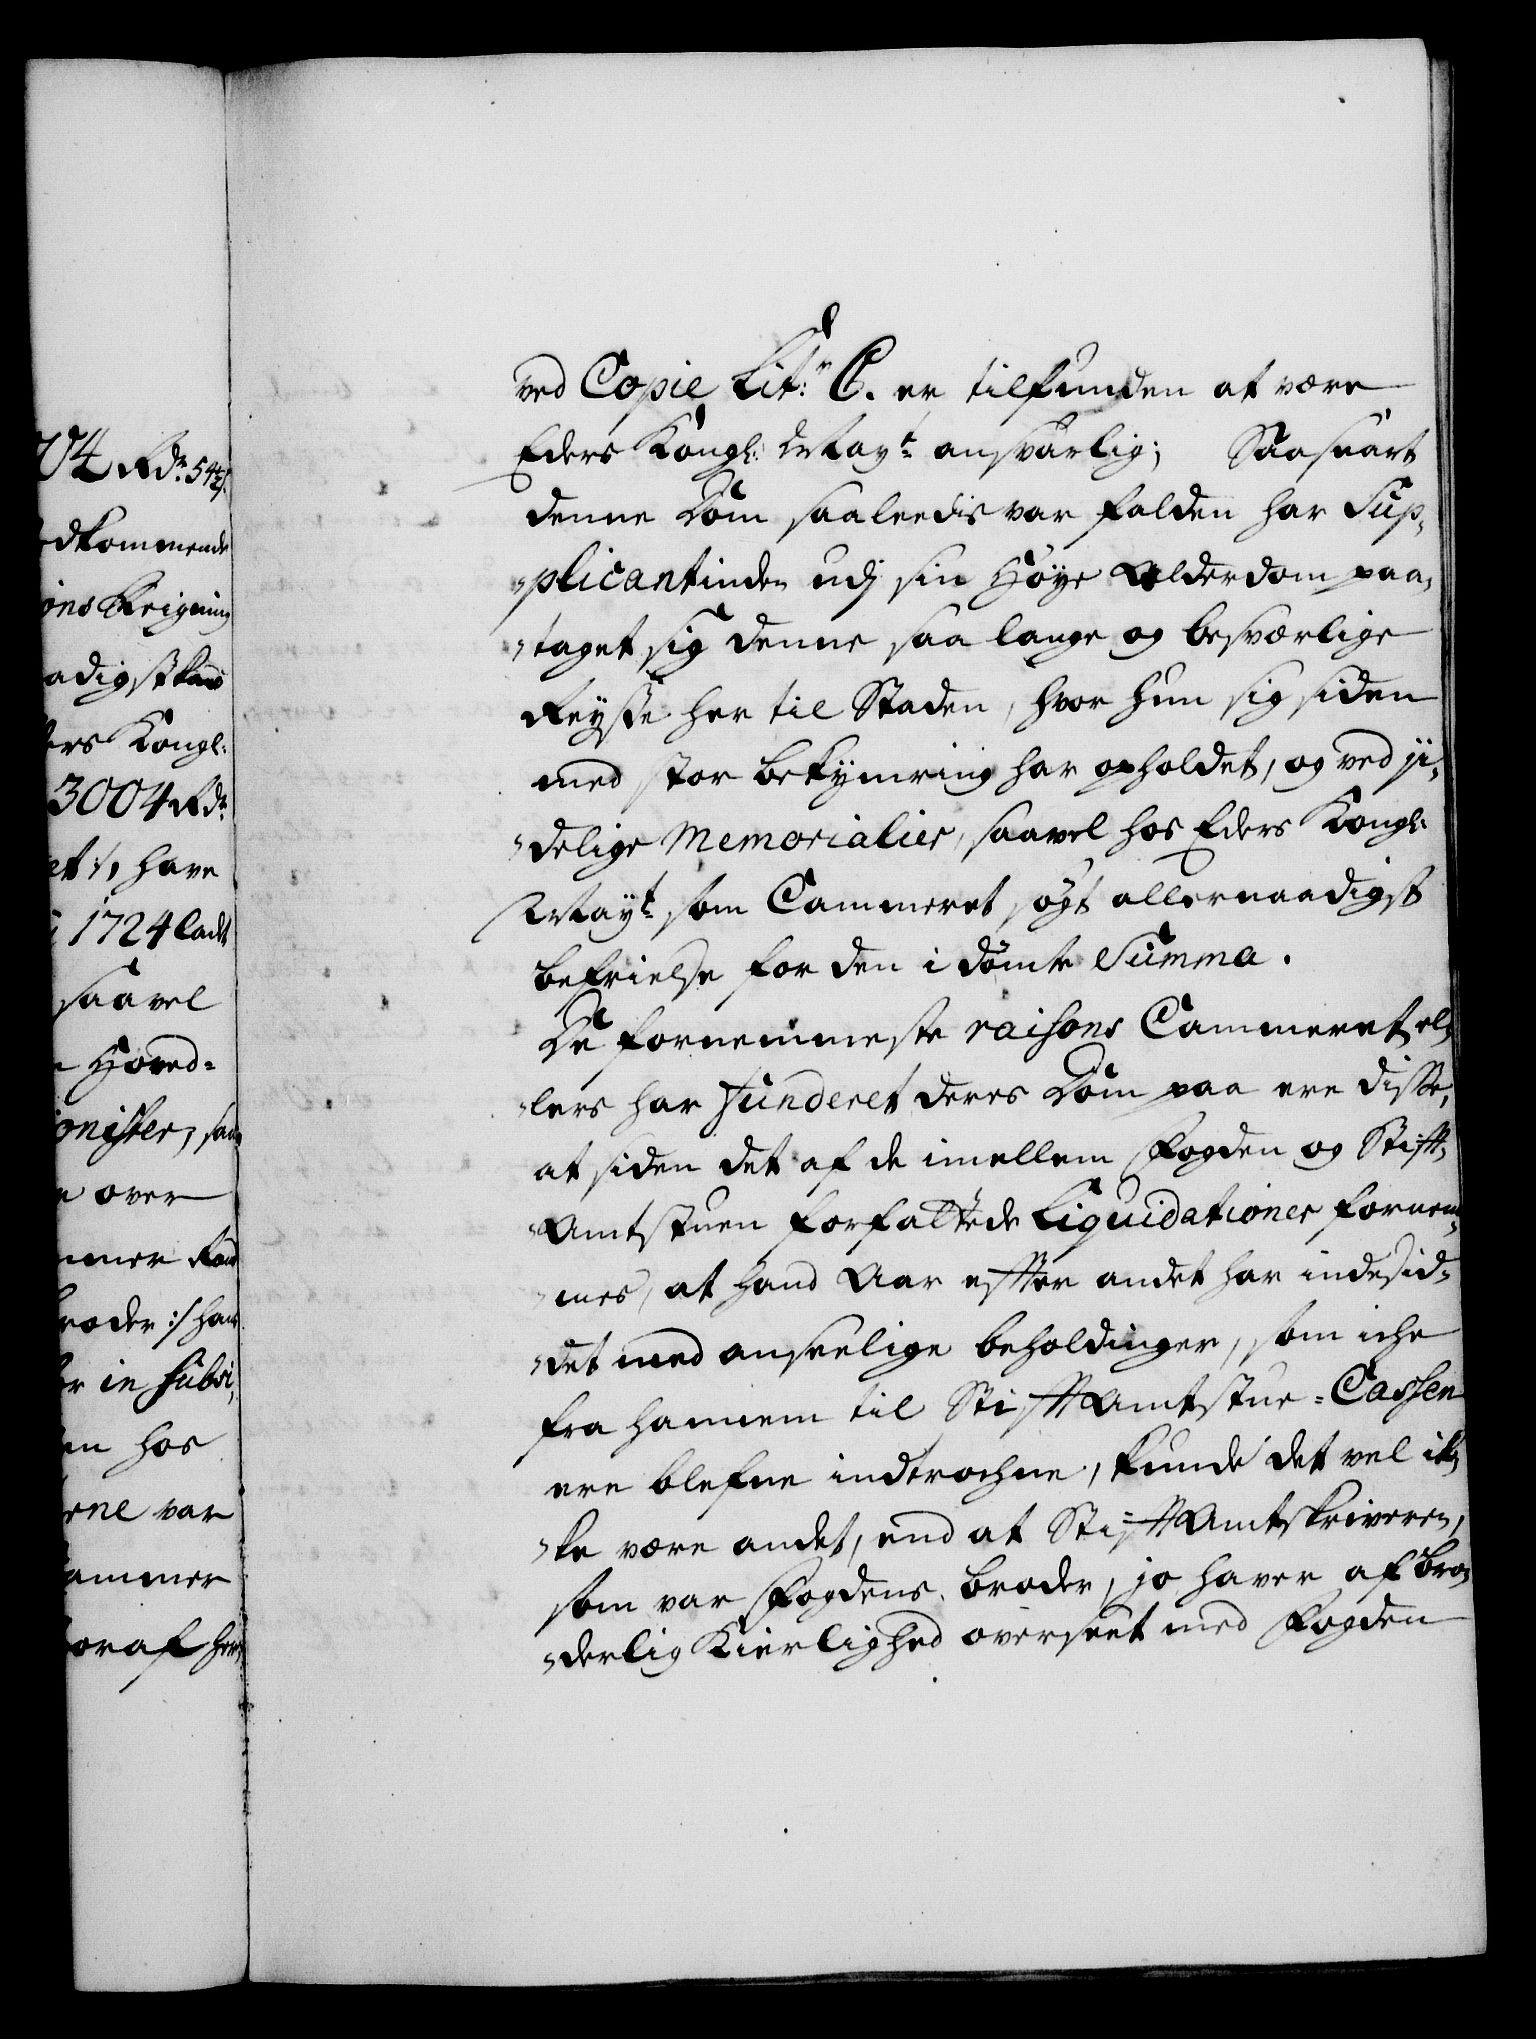 ved Copie Lit: C. er tilfunden at være
Eders Kongl: Mayt: ansvarlig; Saasnart
denne Dom saaleedis var falden har Sup„
„plicantinden udj sin Høye Alderdom paa„
„taget sig denne saa lange og besværlige
Reysse her til Staden, hvor hun sig siden
med stor bekymring har opholdet, og ved ji„
„delige Memorialier, saavel hos Eders Kongl:
Mayt: som Cammeret søgt allernaadigst
befrielse for den i dømte Summa.
De fornemmeste raisons Cammeret el„
„lers har funderet deres Dom paa ere disse,
at siden det af de imellem Fogden og Stift„
„Amtstuen forfattede Liquidationer fornem„
„mes, at hand Aar effter andet har indesid„
„det med anseelige beholdinger, som iche
fra hannem til StifftAmtstue-Cassen
ere blefne inddrachne, kunde det vel ik„
„ke være andet, end at StifftAmtskriveren,
som var Fogdens broder, jo haver af bro„
„derlig Kierlighed overseet med Fogden
04 Rdr. 54½ s.
dkommende
ers Kongl:
3004 Rdr.
et :/, have
1724 ladt
saavel
Hoved-
over
roder :/ har
er in Subsi„
en hos
erne var
ammer
oraf her„